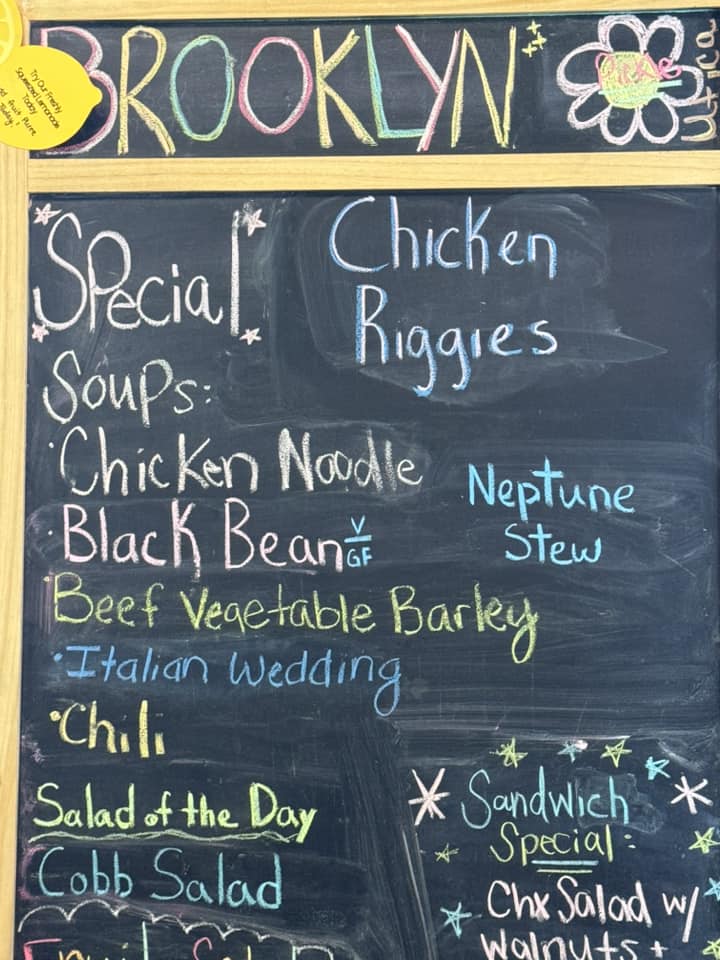 BROOKLYN
Pickle
Utica
Try Our Freshly
Squeezed Lemonade
Today
Fruit Puree
Today!
Special
Chicken
Riggies
Soups:
·Chicken Noodle
·Black Bean V
GF
Beef Vegetable Barley
·Italian Wedding
·Chili
Neptune
Stew
Salad of the Day
Cobb Salad
Sandwich
Special:
Chx Salad w/
Walnuts +